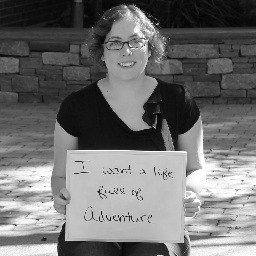 I want a life
full of
Adventure